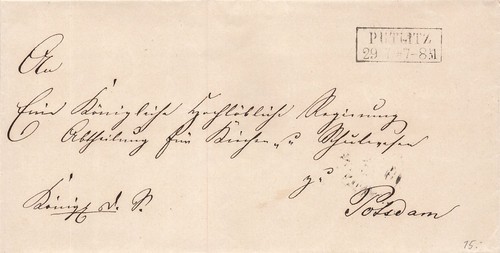 PUTLITZ
29 7-8 M
An
Eine Königliche Hochlöbliche Regierung
Abtheilung für Kirchen- u Schulwesen
zu
Königl. D. S.
Potsdam
15.-